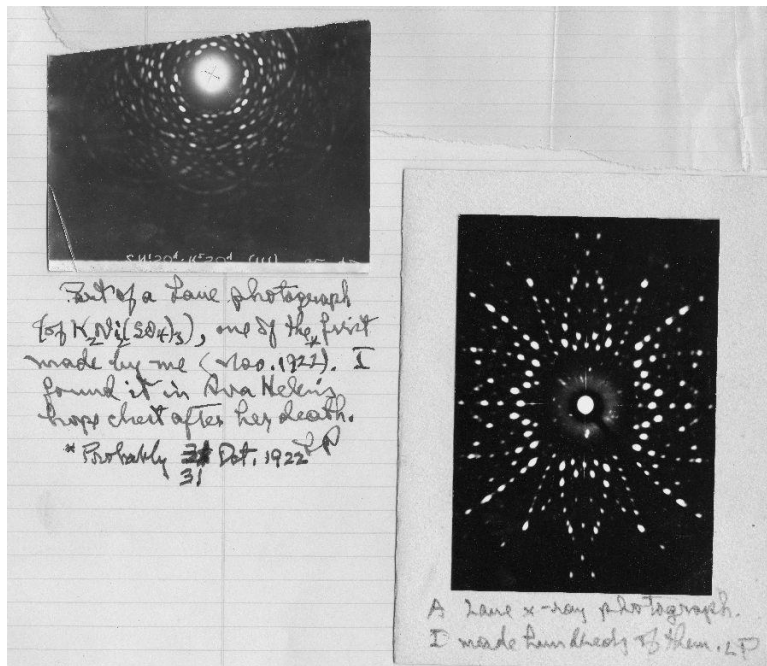 Part of a Laue photograph
(of K2Ni2(SO4)3), one of the* first
made by me (Nov. 1922). I
found it in Ava Helen's
hope chest after her death.
LP
* Probably Oct. 1922
31
A Laue x-ray photograph.
I made hundreds of them. LP